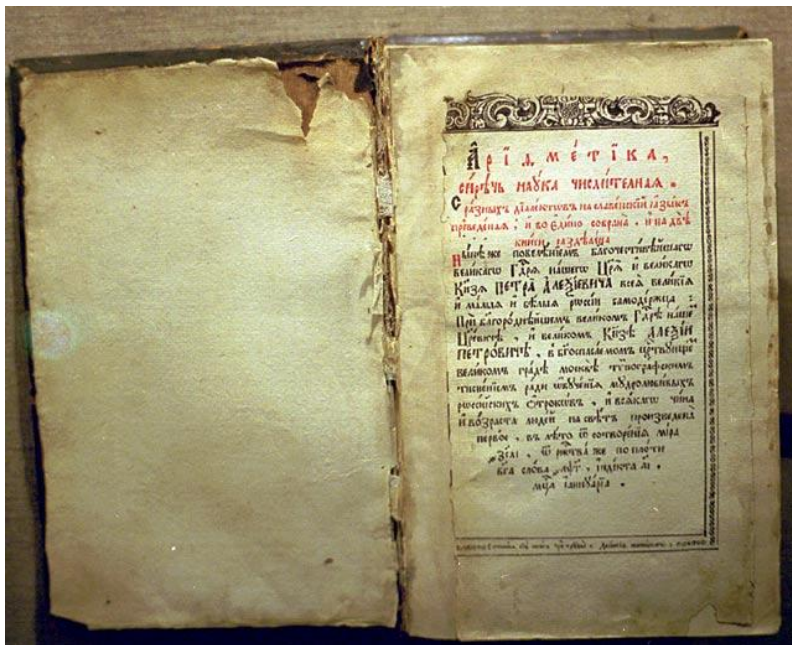 А҆рїѳме́тїка,
си́рѣчь наꙋ́ка числи́телная.
С̾ ра́зныхъ дїале́ктѡвъ на славе́нскїй ꙗ҆зы́къ
преведе́ная, и҆ во є҆ди́но собрана̀, и҆ на двѣ̀
кни̑ги раздѣле́на
Ны́нѣ же повелѣ́нїемъ благочести́вѣйшагѡ
вели́кагѡ Гдⷭ҇рѧ на́шегѡ Цр҃ѧ̀ и҆ вели́кагѡ
Кнѧ́зѧ ПЕТРА̀ А҆ЛЕѮІ́ЕВИЧА всеѧ̀ вели́кїѧ
и҆ ма́лыѧ и҆ бѣ́лыѧ рѡссі́и самоде́ржца :
Прѝ благоро́днѣйшемъ вели́комъ Гдⷭ҇рѣ на́шемъ
Цр҃е́вичѣ, и҆ вели́комъ Кнѧ́зѣ А҆ЛЕѮІ́И
ПЕТРО́ВИЧѢ, в̾ бг҃оспаса́емомъ црⷭ҇твꙋющемъ
вели́комъ гра́дѣ москвѣ̀ тѷпогра́фскимъ
тисне́нїемъ ра́ди ѡ҆бꙋче́нїѧ мꙋдролюби́выхъ
рѡссі́йскихъ ѻ҆́трокѡвъ, и҆ всѧ́кагѡ чи́на
и҆ во́зраста люде́й на свѣ́тъ произведена̀
пе́рвое, въ лѣ́то ѿ сотворе́нїѧ мі́ра
҂зс҃аі, ѿ ржⷭ҇тва̀ же по пло́ти
бг҃а сло́ва ҂аѱг҃, і҆ндїкта а҃і,
мцⷭ҇а і҆аннꙋа́рїа.